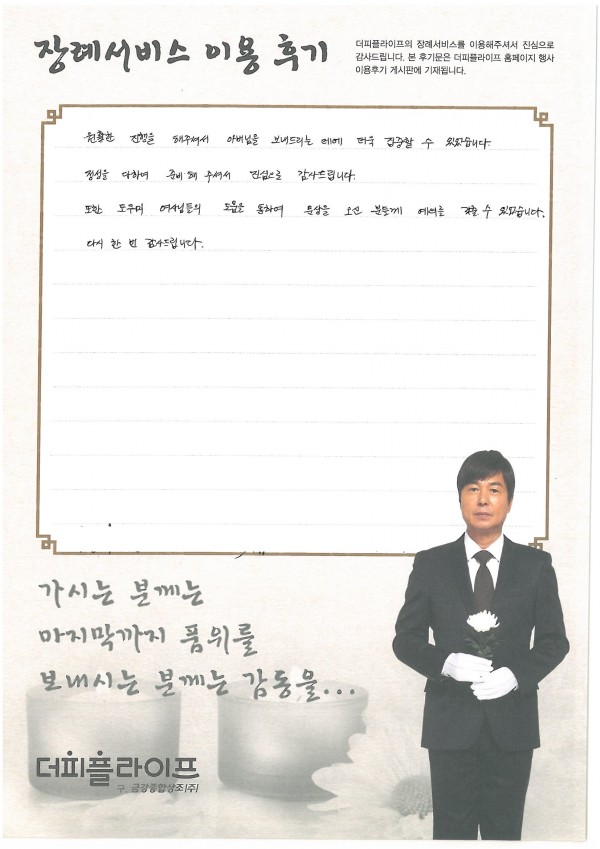 장례서비스 이용 후기
더피플라이프의 장례서비스를 이용해주셔서 진심으로
감사드립니다. 본 후기문은 더피플라이프 홈페이지 행사
이용후기 게시판에 기재됩니다.
원활한 진행을 해주셔서 아버님을 보내드리는 데에 더욱 집중할 수 있었습니다.
정성을 다하여 준비해 주셔서 진심으로 감사드립니다.
또한 도우미 여사님들의 도움을 통하여 문상을 오신 분들께 예의를 갖출 수 있었습니다.
다시 한 번 감사드립니다.
가시는 분께는
마지막까지 품위를
보내시는 분께는 감동을...
더피플라이프
구. 금강종합상조(주)